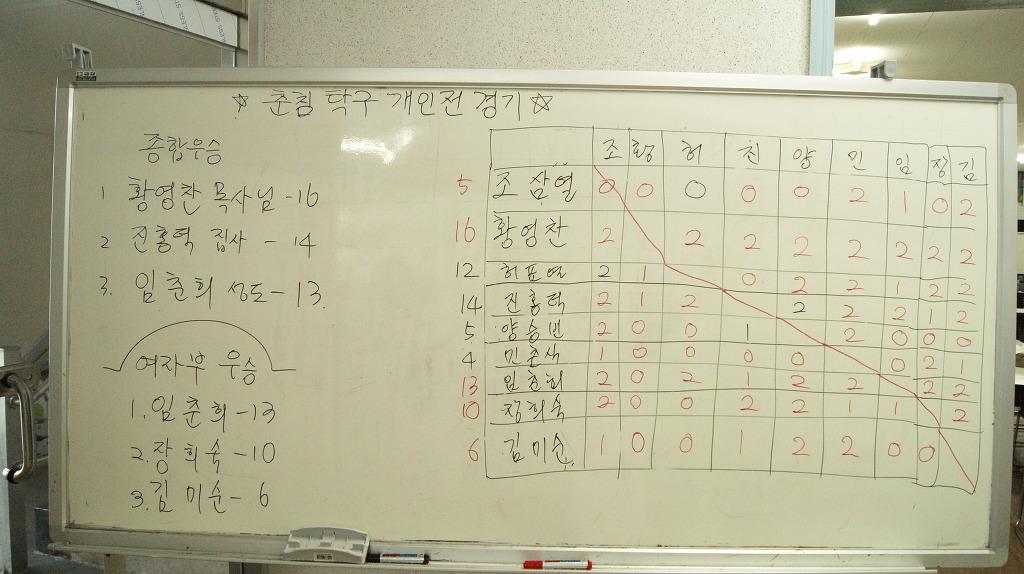 ☆ 춘침 탁구 개인전 경기 ☆
종합우승
1 황영찬 목사님 - 16
2 진홍택 집사 - 14
3. 임춘희 성도 - 13.
여자부 우승
1. 임춘희 - 13
2. 장희숙 - 10
3. 김미순 - 6
조 황 허 진 양 민 임 장 김
5 조삼열 0 0 0 0 0 2 1 0 2
16 황영찬 2 2 2 2 2 2 2 2
12 허표열 2 1 0 2 2 1 2 2
14 진홍택 2 1 2 2 2 2 1 2
5 양승빈 2 0 0 1 2 0 0 0
4 민준식 1 0 0 0 0 0 2 1
13 임춘희 2 0 2 1 2 2 2 2
10 장희숙 2 0 0 2 2 1 1 2
6 김미순 1 0 0 1 2 2 0 0